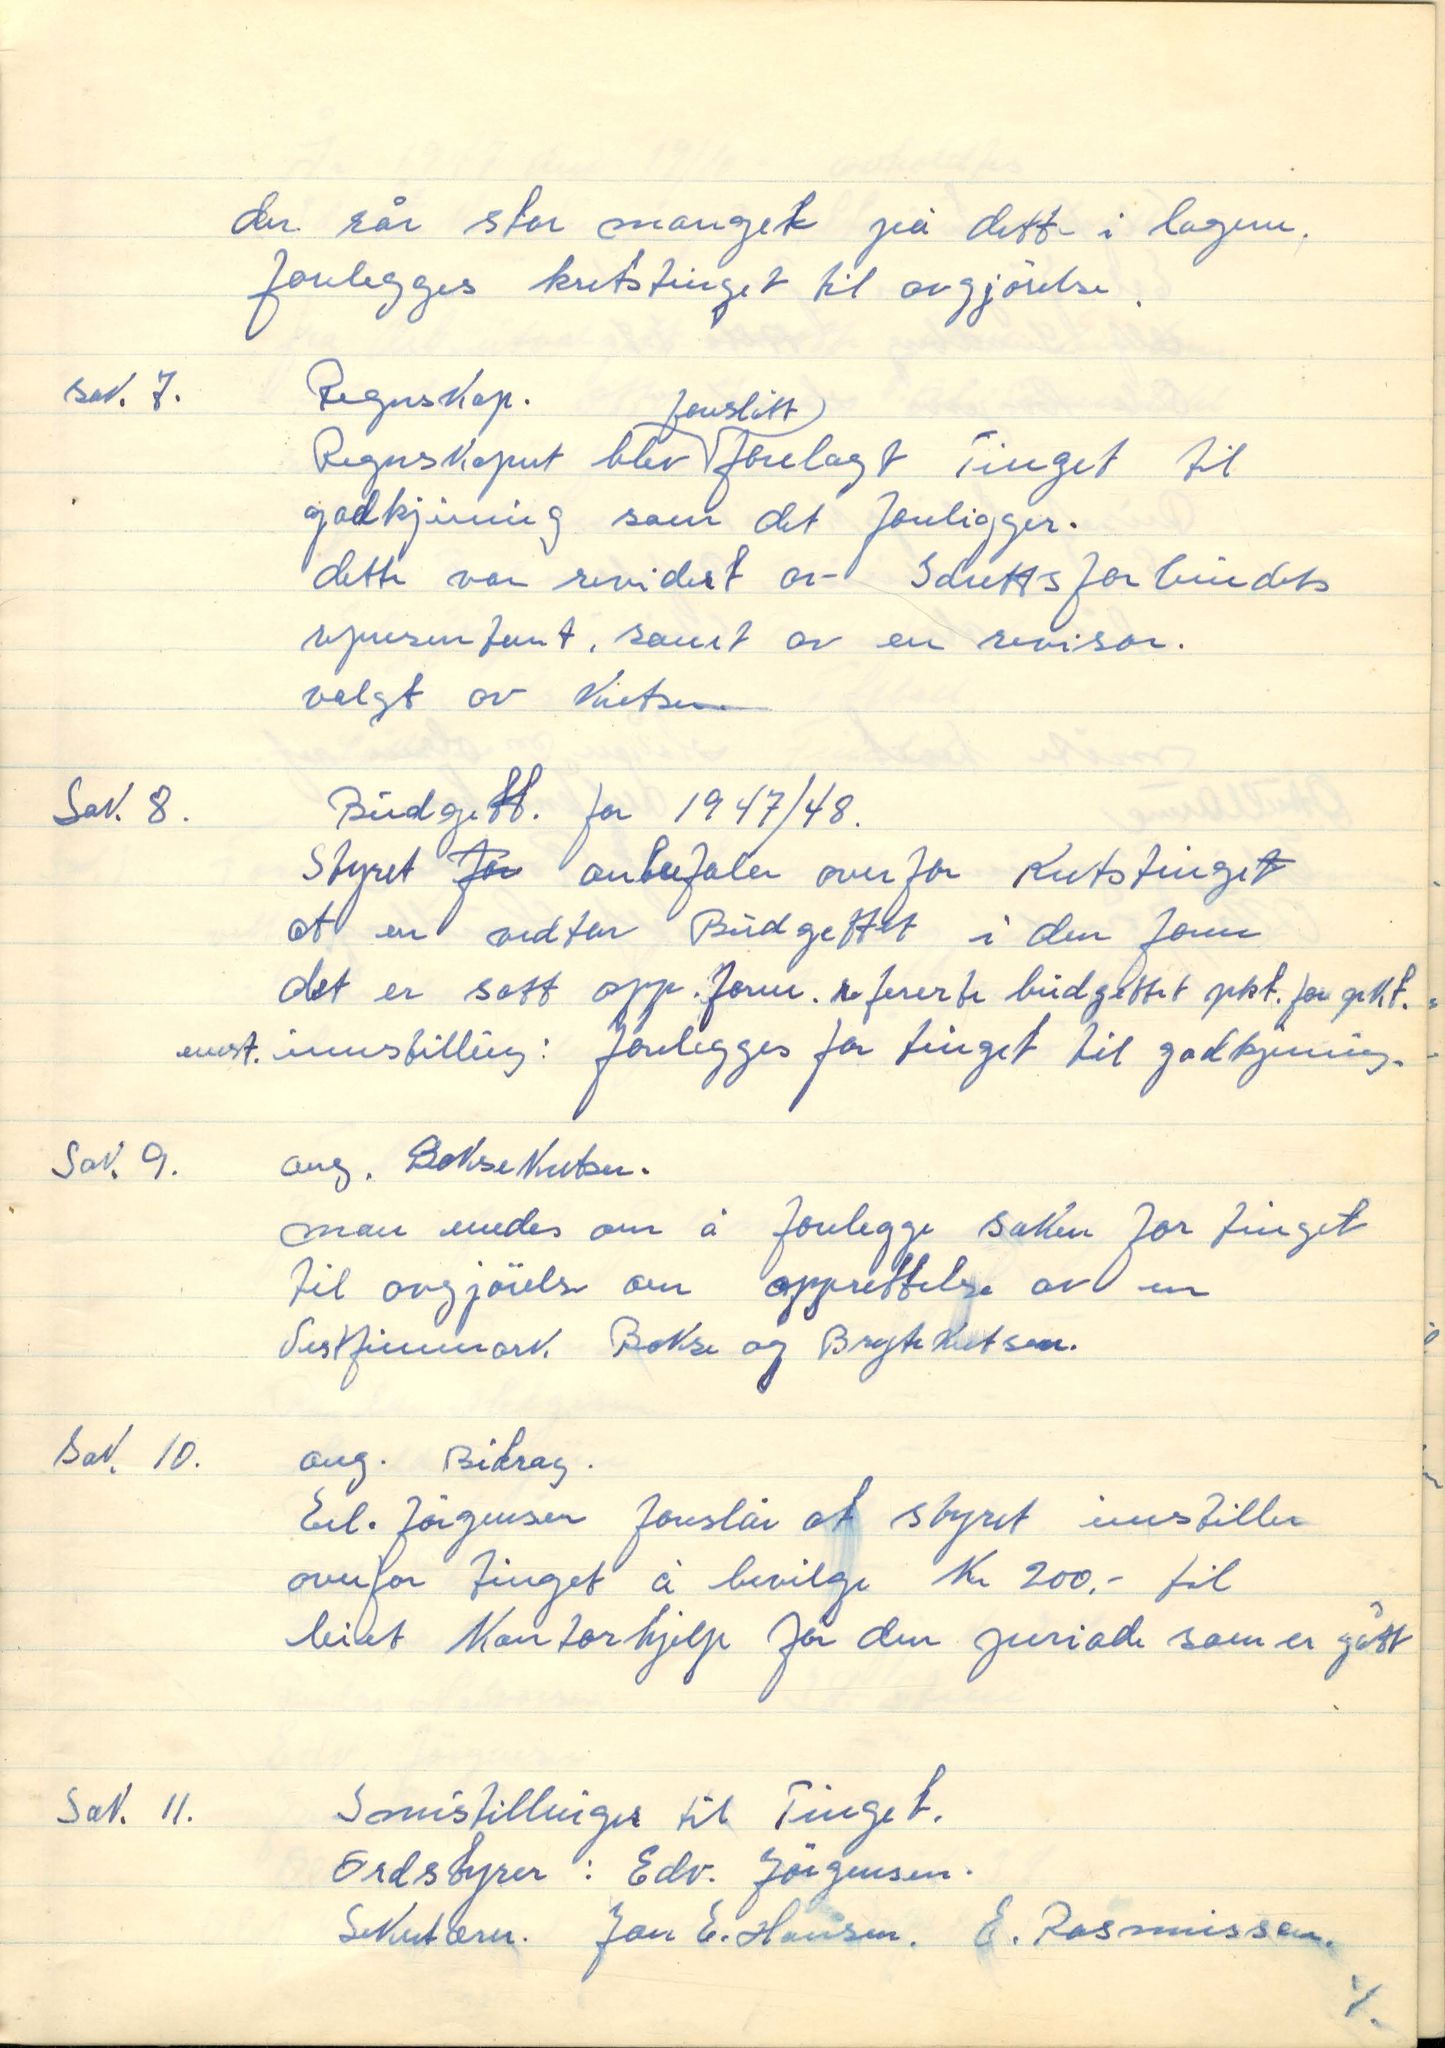 der rår stor mangel på dette i lagene.
forelegges kretstinget til avgjörelse.
sak. 7. Regnskap.
foreslått
Regnskapet blev forelagt Tinget til
godkjenning som det foreligger.
dette var revidert av Idrettsforbundets
representant, samt av en revisor.
valgt av Kretsen
Sak. 8. Büdgett. for 1947/48.
Styret for anbefaler overfor Kretstinget
at en vedtar Büdgettet i den form
det er satt opp. form. refererte büdgettet pkt. for pkt.
enst. innstilling: forelegges for tinget til godkjenning.
Sak. 9. ang. Boksekretsen.
man enedes om å forelegge saken for tinget
til avgjörelse om opprettelse av en
Vestfinnmark Bokse og Brytekretsen.
Sak. 10. ang. Bidrag.
Jörgensen foreslår at styret innstiller
overfor tinget å bevilge Kr 200.- til
leiet Kontorhjelp for den periode som er gått
Sak. 11. Innstillinger til Tinget.
Ordstyrer: Edv. Jörgensen.
Sekretærer. Jan E. Hansen. E. Rasmussen.